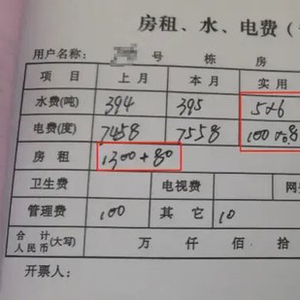 房租、水、电费（
用户名称： 号 栋 房
项 目 上 月 本 月 实 用
水费(吨) 394 395 5×6
电费(度) 7458 7558 100×0.8
房 租 1300+80
卫生费 电视费 网
管理费 100 其 它 10
合 计 人民币(大写) 万 仟 佰 拾
开票人：